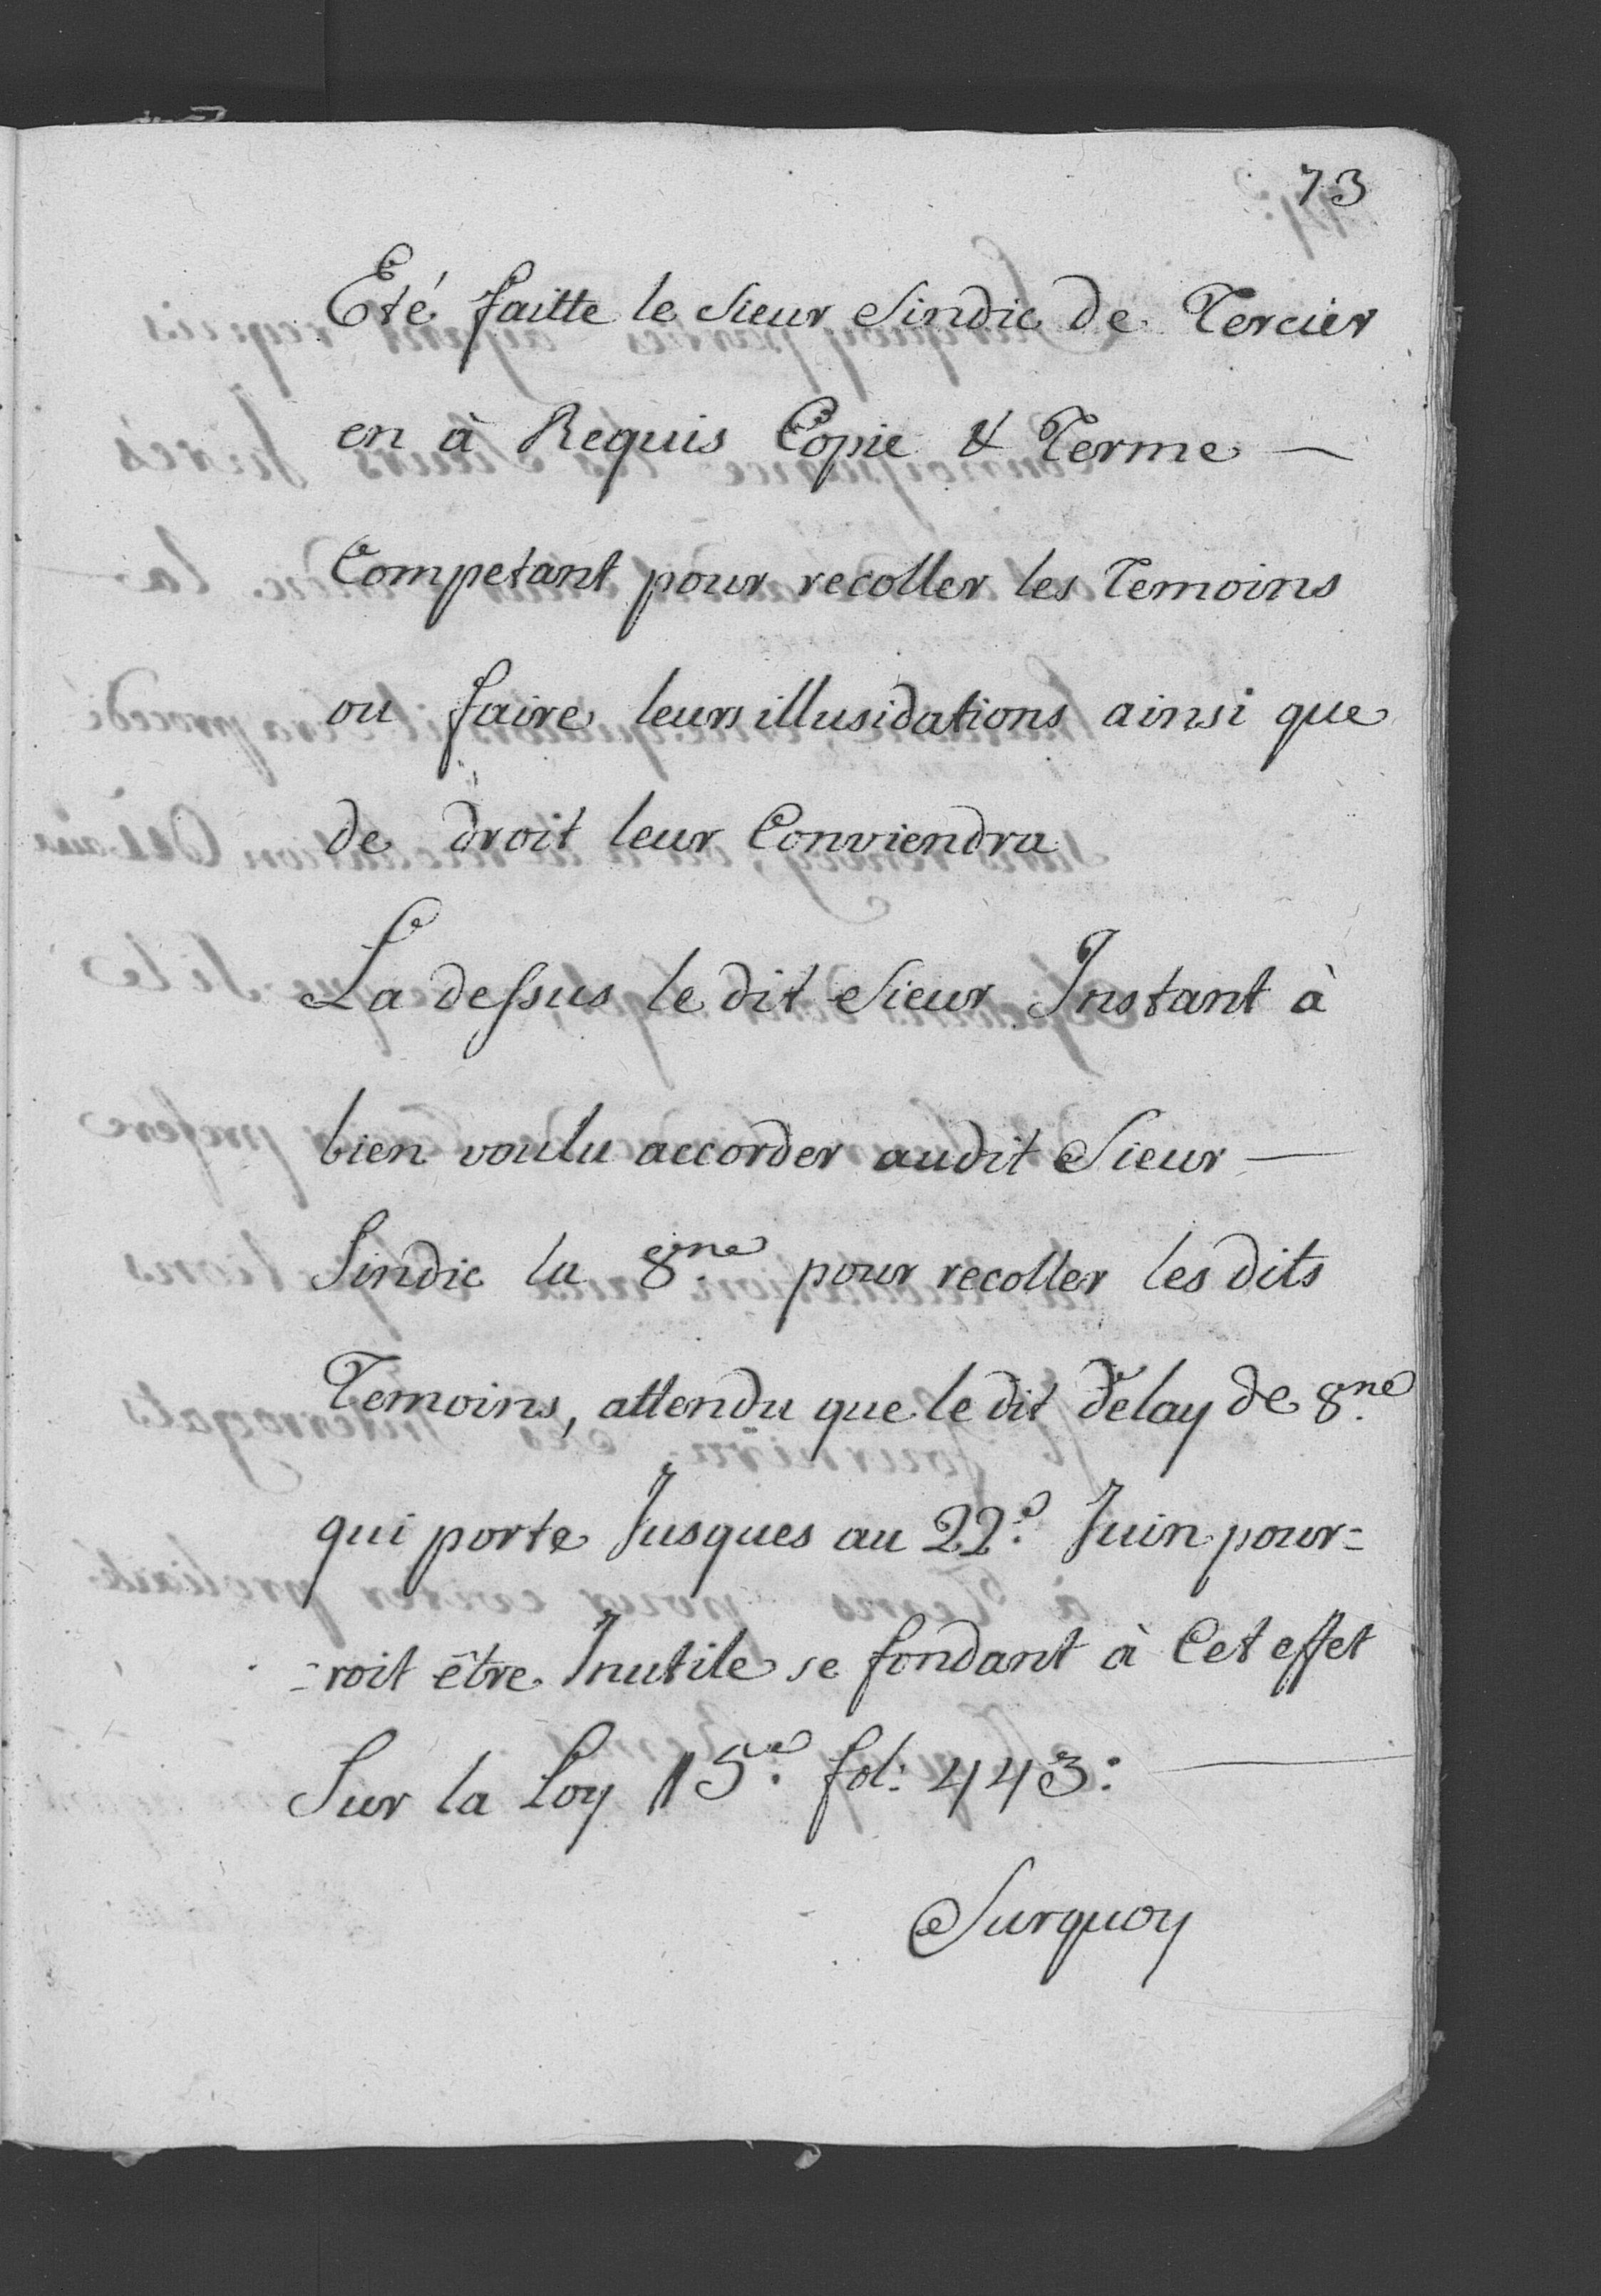 73
Eté faitte le Sieur Sindic de Tercier
en à Requis Copie & Terme —
Competant pour recoller les Temoins
ou faire leurs illusidations ainsi que
de droit leur Conviendra
La dessus le dit Sieur Instant à
bien voulu accorder audit Sieur —
Sindic la 8.ne pour recoller les dits
Temoins, attendu que le dit delay de 8.ne
qui porte Jusques au 22.e Juin pour=
=roit être Inutile se fondant à Cet effet
Sur la Loy 15.e fol: 443: —
Surquoy